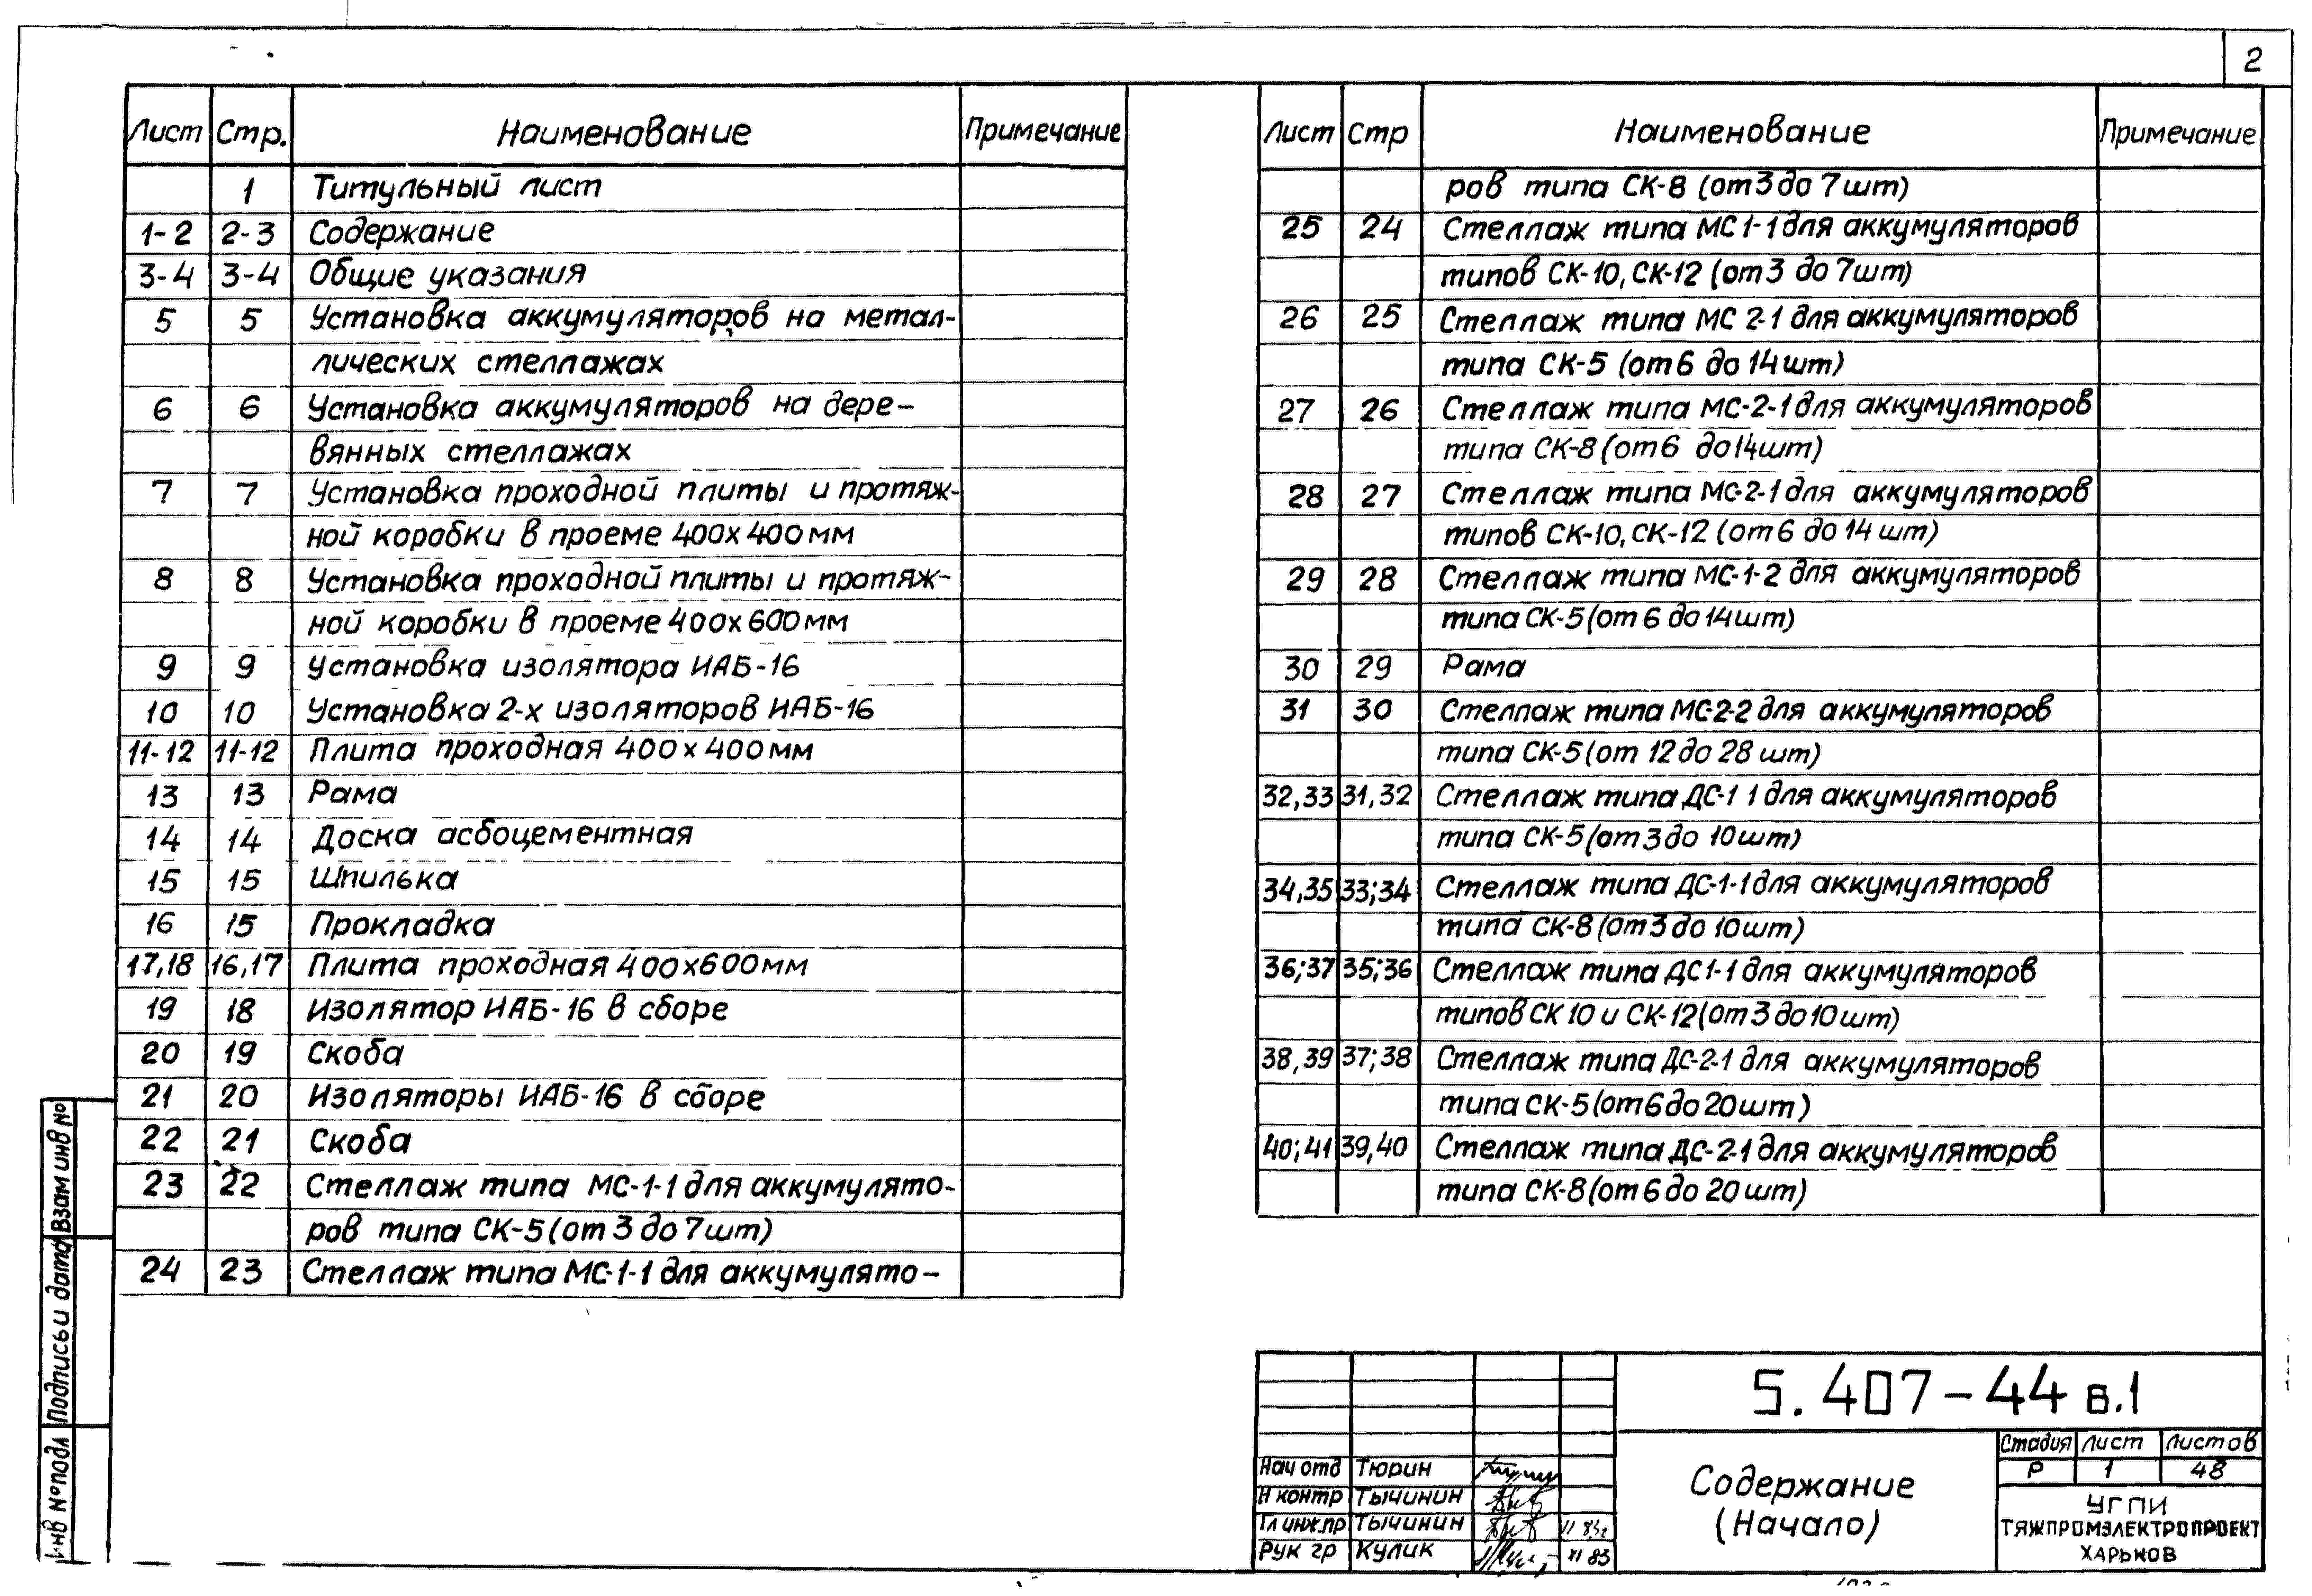 2
Лист Стр. Наименование Примечание
1 Титульный лист
1-2 2-3 Содержание
3-4 3-4 Общие указания
5 5 Установка аккумуляторов на метал-
лических стеллажах
6 6 Установка аккумуляторов на дере-
вянных стеллажах
7 7 Установка проходной плиты и протяж-
ной коробки в проеме 400х400мм
8 8 Установка проходной плиты и протяж-
ной коробки в проеме 400х600мм
9 9 Установка изолятора ИАБ-16
10 10 Установка 2-х изоляторов ИАБ-16
11-12 11-12 Плита проходная 400х400мм
13 13 Рама
14 14 Доска асбоцементная
15 15 Шпилька
16 15 Прокладка
17,18 16,17 Плита проходная 400х600мм
19 18 Изолятор ИАБ-16 в сборе
20 19 Скоба
21 20 Изоляторы ИАБ-16 в сборе
22 21 Скоба
23 22 Стеллаж типа МС-1-1 для аккумулято-
ров типа СК-5 (от 3 до 7шт)
24 23 Стеллаж типа МС-1-1 для аккумулято-
Лист Стр Наименование Примечание
ров типа СК-8 (от 3 до 7шт)
25 24 Стеллаж типа МС1-1 для аккумуляторов
типов СК-10, СК-12 (от 3 до 7шт)
26 25 Стеллаж типа МС 2-1 для аккумуляторов
типа СК-5 (от 6 до 14шт)
27 26 Стеллаж типа МС-2-1 для аккумуляторов
типа СК-8 (от 6 до 14шт)
28 27 Стеллаж типа МС-2-1 для аккумуляторов
типов СК-10, СК-12 (от 6 до 14 шт)
29 28 Стеллаж типа МС-1-2 для аккумуляторов
типа СК-5 (от 6 до 14шт)
30 29 Рама
31 30 Стеллаж типа МС-2-2 для аккумуляторов
типа СК-5 (от 12 до 28 шт)
32,33 31,32 Стеллаж типа ДС-1 1 для аккумуляторов
типа СК-5 (от 3 до 10шт)
34,35 33;34 Стеллаж типа ДС-1-1 для аккумуляторов
типа СК-8 (от 3 до 10шт)
36;37 35;36 Стеллаж типа ДС1-1 для аккумуляторов
типов СК 10 и СК-12 (от 3 до 10шт)
38,39 37;38 Стеллаж типа ДС-2-1 для аккумуляторов
типа СК-5 (от 6 до 20шт)
40;41 39,40 Стеллаж типа ДС-2-1 для аккумуляторов
типа СК-8 (от 6 до 20шт)
Взам инв №
Подпись и дата
Инв № подл
5.407-44 в.1
Содержание
(Начало)
Стадия Лист Листов
Р 1 48
УГПИ
ТЯЖПРОМЭЛЕКТРОПРОЕКТ
ХАРЬКОВ
Нач отд Тюрин
Н контр Тычинин
Гл инж.пр Тычинин
Рук гр Кулик XI 83